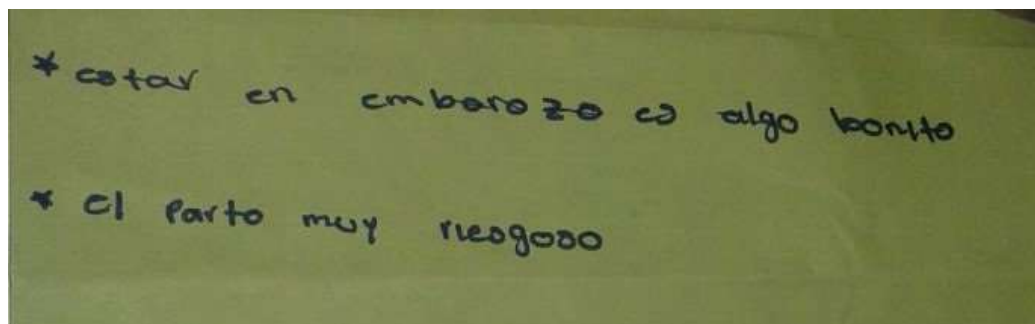 * estar en embarazo es algo bonito
* el Parto muy riesgoso